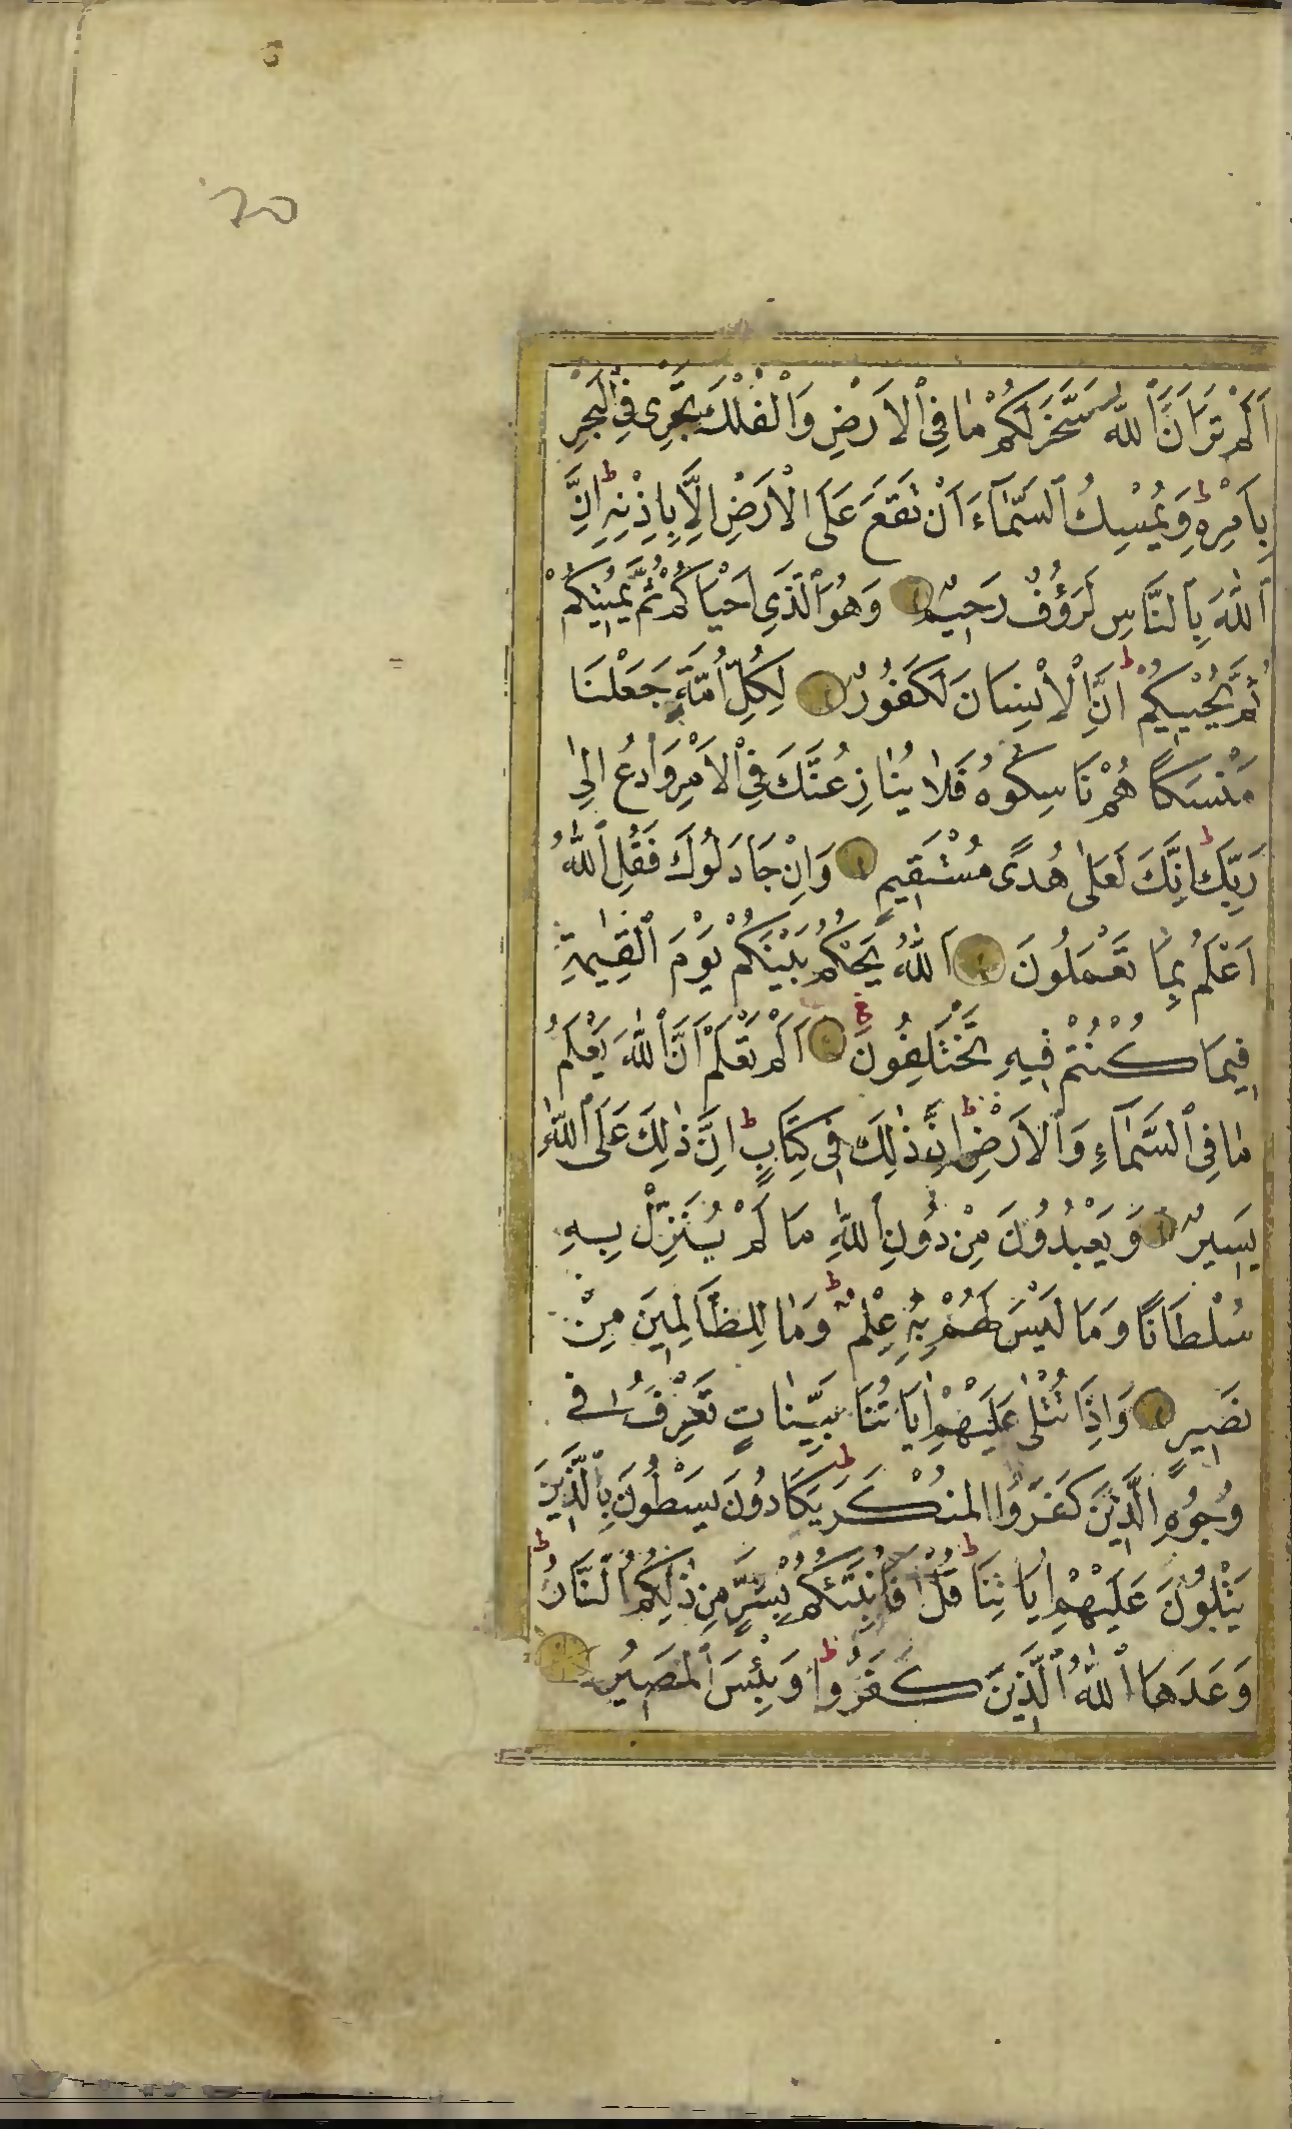 20
اَلَمْ تَرَ اَنَّ ٱللّٰهَ سَخَّرَ لَكُمْ مَا فِي ٱلْاَرْضِ وَالْفُلْكَ تَجْرِي فِي ٱلْبَحْرِ
بِاَمْرِهٖ ط وَيُمْسِكُ ٱلسَّمَآءَ اَنْ تَقَعَ عَلَى الْاَرْضِ اِلَّا بِاِذْنِهٖ ط اِنَّ
ٱللّٰهَ بِٱلنَّاسِ لَرَؤُفٌ رَحِيمٌ وَهُوَ ٱلَّذِي اَحْيَاكُمْ ثُمَّ يُمِيتُكُمْ
ثُمَّ يُحْيِيكُمْ ط اِنَّ ٱلْاِنْسَانَ لَكَفُورٌ لِكُلِّ اُمَّةٍ جَعَلْنَا
مَنْسَكًا هُمْ نَاسِكُوهُ فَلَا يُنَازِعُنَّكَ فِي ٱلْاَمْرِ وَادْعُ اِلٰى
رَبِّكَ ط اِنَّكَ لَعَلٰى هُدًى مُسْتَقِيمٍ وَاِنْ جَادَلُوكَ فَقُلِ ٱللّٰهُ
اَعْلَمُ بِمَا تَعْمَلُونَ اَللّٰهُ يَحْكُمُ بَيْنَكُمْ يَوْمَ ٱلْقِيٰمَةِ
فِيمَا كُنْتُمْ فِيهِ تَخْتَلِفُونَ اَلَمْ تَعْلَمْ اَنَّ ٱللّٰهَ يَعْلَمُ
مَا فِي ٱلسَّمَآءِ وَٱلْاَرْضِ ط اِنَّ ذٰلِكَ فِي كِتَابٍ ط اِنَّ ذٰلِكَ عَلَى ٱللّٰهِ
يَسِيرٌ وَيَعْبُدُونَ مِنْ دُونِ ٱللّٰهِ مَا لَمْ يُنَزِّلْ بِهِ
سُلْطَانًا وَمَا لَيْسَ لَهُمْ بِهٖ عِلْمٌ ط وَمَا لِلظَّالِمِينَ مِنْ
نَصِيرٍ وَاِذَا تُتْلٰى عَلَيْهِمْ اٰيَاتُنَا بَيِّنَاتٍ تَعْرِفُ فِي
وُجُوهِ الَّذِينَ كَفَرُوا المُنْكَرَ ط يَكَادُونَ يَسْطُونَ بِٱلَّذِينَ
يَتْلُونَ عَلَيْهِمْ اٰيَاتِنَا ط قُلْ اَفَاُنَبِّئُكُمْ بِشَرٍّ مِنْ ذٰلِكُمُ ٱلنَّارُ ط
وَعَدَهَا ٱللّٰهُ ٱلَّذِينَ كَفَرُوا ط وَبِئْسَ ٱلْمَصِيرُ